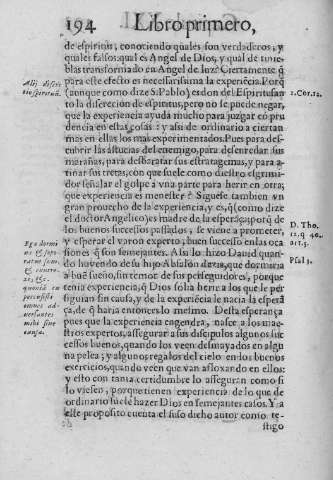 194 Libro primero,
de espiritus, conociendo quales son verdaderos, y
quales falsos: qual es Angel de Dios, y qual de tinie-
blas transformado en Angel de luz? Ciertamente q̃
para este efecto es necessarissima la experiẽcia. Porq̃
(aunque como dize S. Pablo) es don del Espiritusan
to la discrecion de espiritus, pero no se puede negar,
que la experiencia ayuda mucho para juzgar cõ pru
dencia en estas cosas: y assi de ordinario aciertan
mas en ellas los mas experimentados. Pues para des-
cubrir las astucias del enemigo, para desenredar sus
marañas, para desbaratar sus estratagemas, y para a-
tinar sus tretas, con que suele como diestro esgrimi-
dor señalar el golpe à vna parte para herir en otra;
que experiencia es menester? Siguese tambien vn
gran prouecho de la experiencia, y es, q̃ (como dize
el doctor Angelico) es madre de la esperãça: porq̃ de
los buenos successos passados, se viene a prometer,
y esperar el varon experto, buen successo en las oca-
siones q̃ son semejantes. Assi lo hizo Dauid quan-
do huyendo de su hijo Absalon dezia, que dormiria
a buẽ sueño, sin temor de sus perseguidores, porque
tenia experiencia, q̃ Dios solia herir a los que le per-
siguian sin causa, y de la experiẽcia le nacia la esperã
ça, de q̃ haria entonces lo mismo. Desta esperança
pues que la experiencia engendra, nasce a los mae-
stros expertos, assegurar a sus discipulos algunos suc
cessos buenos, quando los veen desmayados en algu
na pelea; y algunos regalos del cielo en los buenos
exercicios, quando veen que van afloxando en ellos:
y esto con tanta certidumbre lo asseguran como si
lo viesen, porque tienen experiencia de lo que de
ordinario suele hazer Dios en semejantes casos. Y a
este proposito cuenta el suso dicho autor como te-
stigo
Alij discre
tio spirituũ.
1. Cor. 12.
D. Tho.
1. 2. q. 40.
art. 5.
Psal 3.
Ego dormi
ui & sopo
ratus sum,
& exurre
xi, &c.
quoniã tu
percussisti
omnes ad-
uersantes
mihi sine
causa.